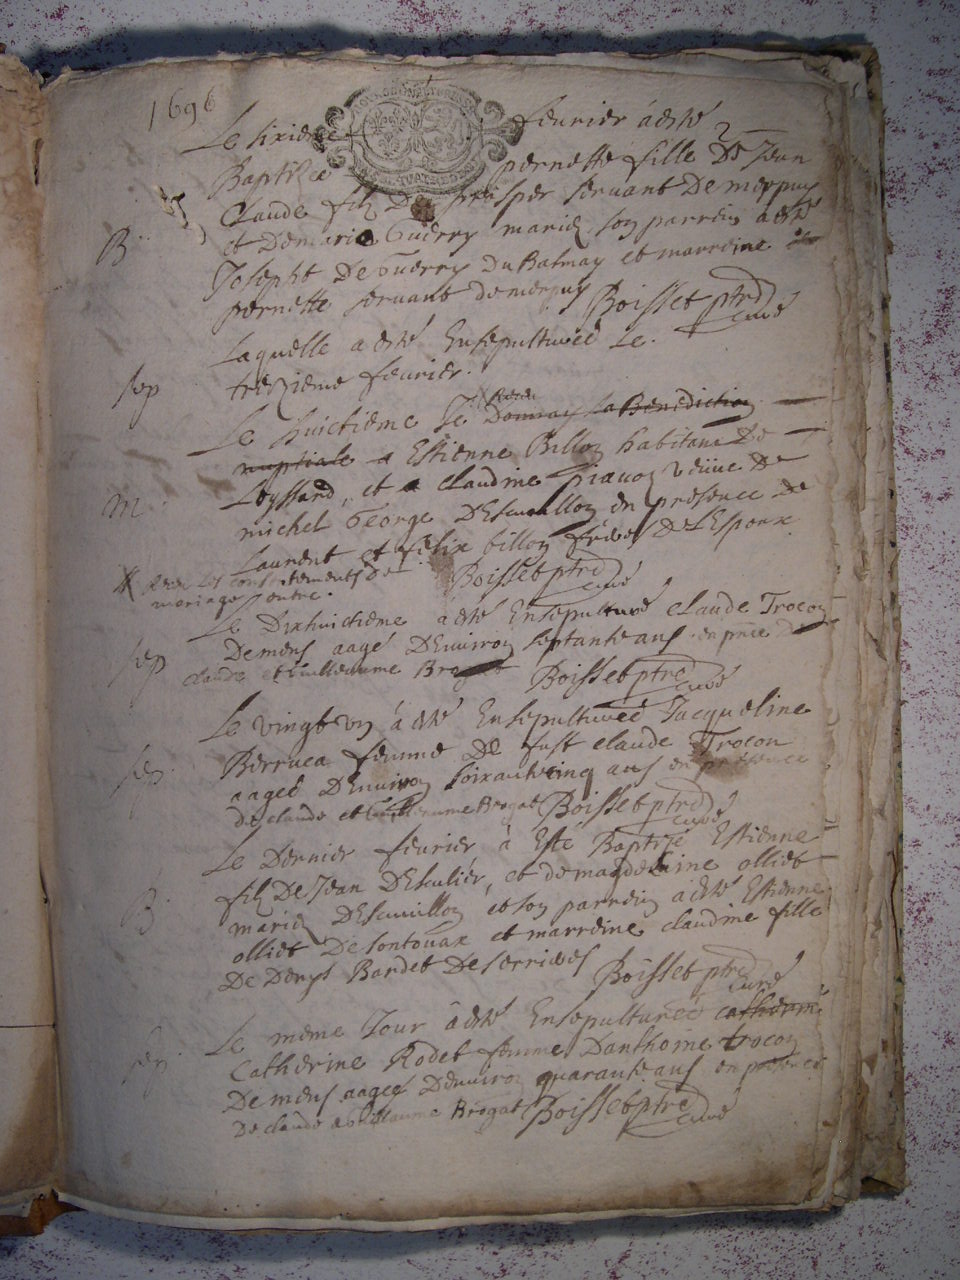 1696
Le sixieme fevrier a esté
Baptizee pernette fille De Jean
Claude filz De prosper servant De merpuy
B et De marie Guerry mariez son parrein a esté
Joseph De Guerry Du Balmay et marreine
pernette servant de merpuy Boisset ptre curé
Laquelle a esté Ensepulturée Le
sep treizieme fevrier.
Le huictieme Je Donnay La Benediction
nuptiale a Estienne Billon habitant De
Leyssard, et a Claudine veuve De
m michel George D'Escuvillon en presence de
Laurent et felix billon freres De L'Espoux
les consentements de Boisset ptre curé
mariage
Le Dixhuictieme a esté Ensepulturé Claude Trocon
sep De mens aagé D'Environ septante ans en pnce De
claude et Guillaume Brogat Boisset ptre curé
Le vingt un a esté Ensepulturée Jacqueline
Berruca femme De fust claude Trocon
sep aagée D'Environ soixante cinq ans en presence
de claude et Guillaume Brogat Boisset ptre curé
Le Dernier fevrier a Esté Baptizé Estienne
filz De Jean D'Esculier, et de magdeleine olliet
B mariez D'Escuvillon et son parrein a esté Estienne
olliet De sontouax et marreine claudine fille
De Denys Bardet De serrieres Boisset ptre curé
Le meme Jour a esté Ensepulturée catherine
sep Catherine Rodet femme D'anthoine trocon
De mens aagée D'environ quarante ans en presence
De claude Guillaume Brogat Boisset ptre curé